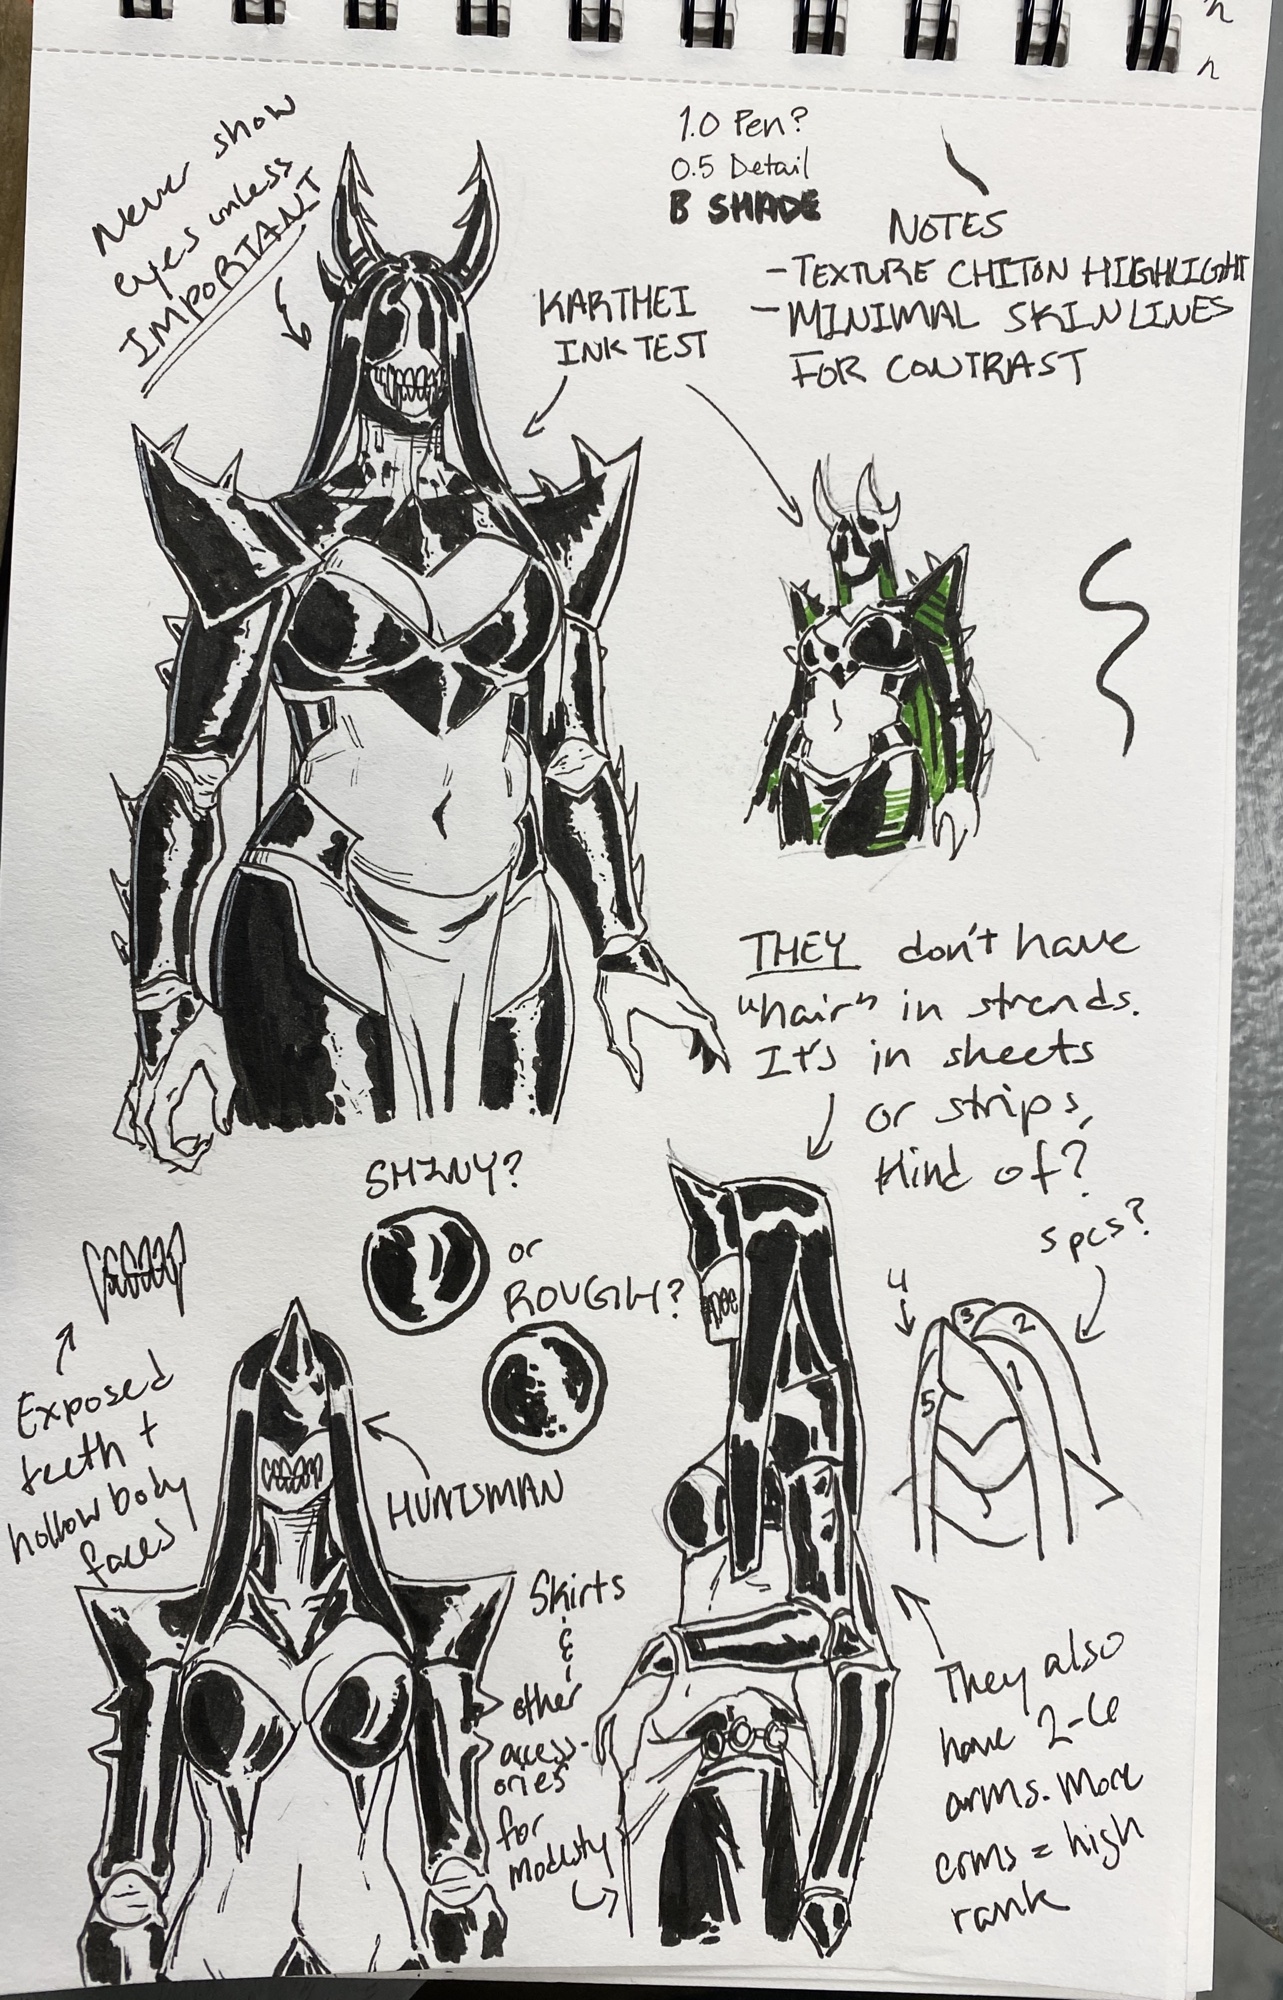 Never show
eyes unless
IMPORTANT
1.0 Pen?
0.5 Detail
B SHADE
NOTES
- TEXTURE CHITON HIGHLIGHT
- MINIMAL SKIN LINES
FOR CONTRAST
KARTHEI
INK TEST
THEY don't have
"hair" in strends.
It's in sheets
or strips,
kind of?
5 pcs?
4
3
2
1
5
SHINY?
or
ROUGH?
Exposed
teeth +
hollow body
faces
HUNTSMAN
Skirts
&
other
access-
ories
for
modesty
They also
have 2-6
arms. More
arms = high
rank